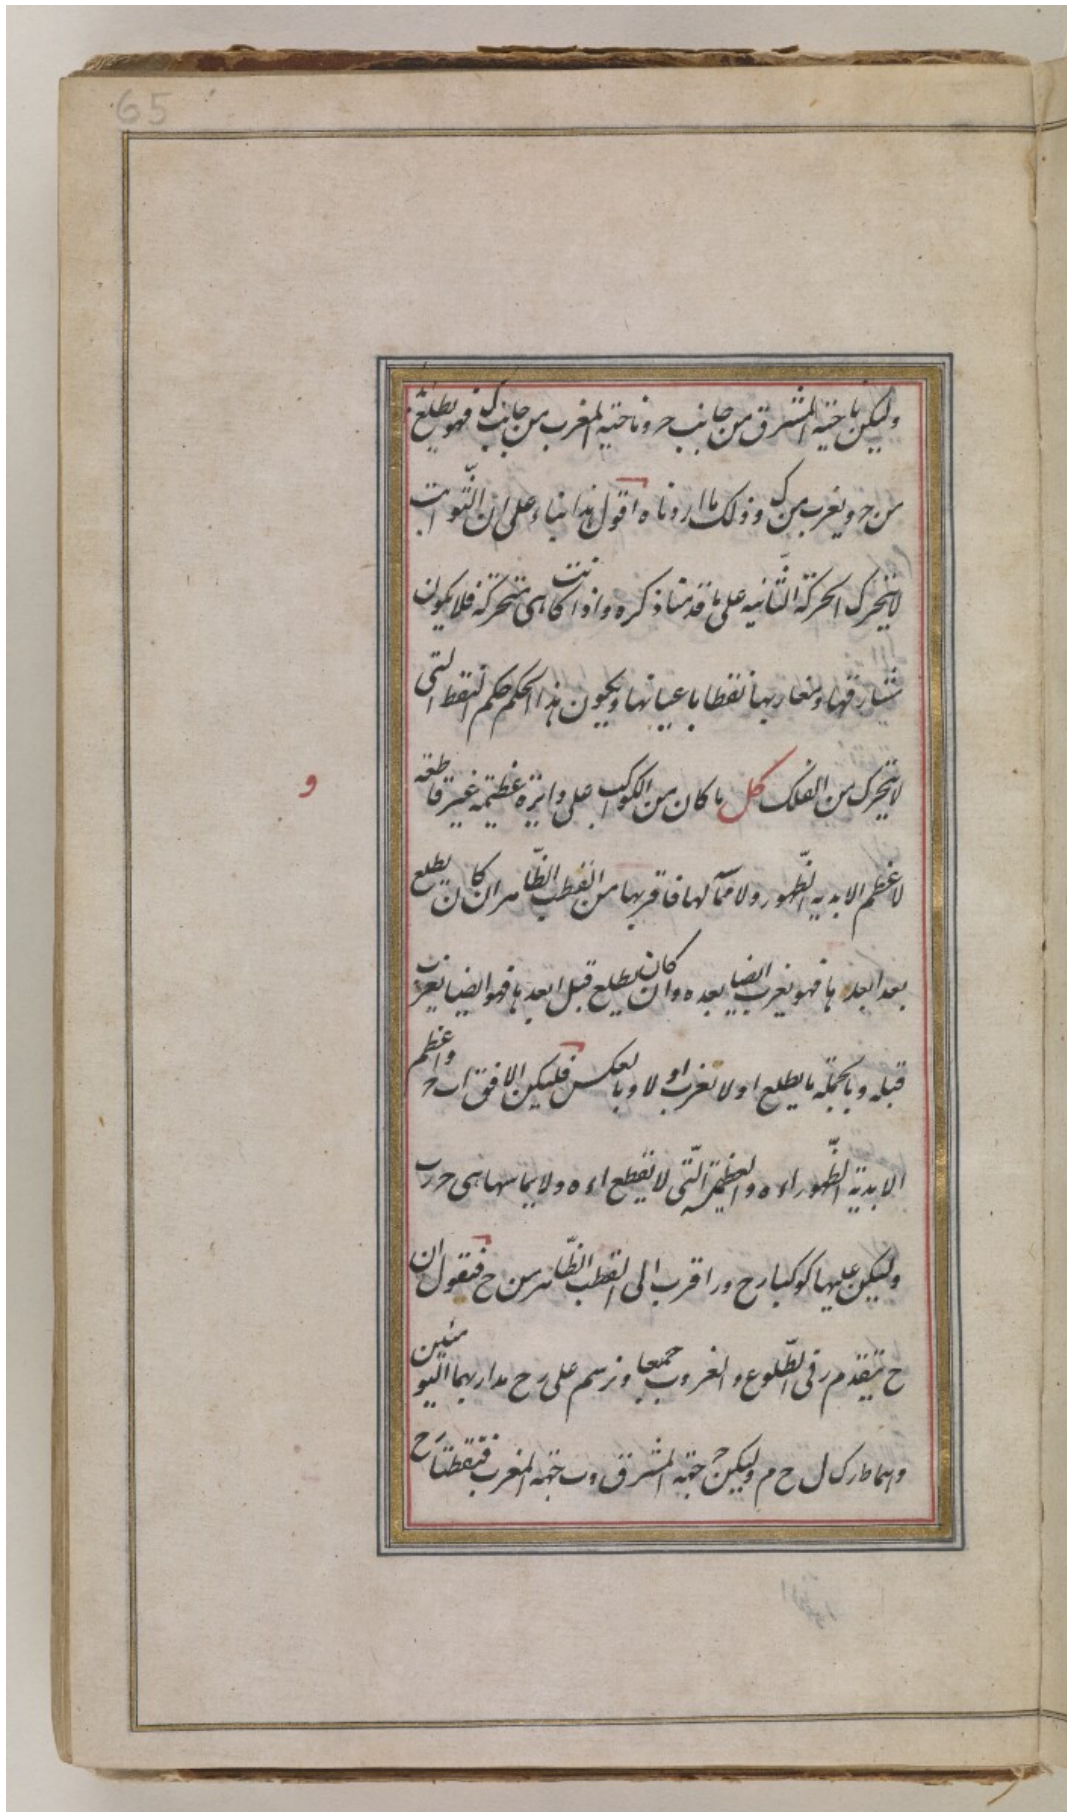 65
وليكن ناحية المشرق من جانب حـ وناحية المغرب من جانب ک فهو يطلع
من حـ ويغرب من ک وذلک ما اردناه اقول هذا بناء على ان الثّوابت
لا يتحرک الحركة الثّانيه على ما قدمنا ذكره واذا كانت هى متحركة فلا يكون
مشارقها ومغاربها نقطا باعيانها ويكون هذا الحكم حكم النقط التى
لا يتحرک من الفلک كل ما كان من الكواكب على دائرة عظيمة غير قاطعة
و
لاعظم الابدية الظّهور ولا مماسّة لها فاقربها من القطب الظّاهر ان كان يطلع
بعد ابعدها فهو يغرب ايضا بعده وان كان يطلع قبل ابعدها فهو ايضا يغرب
قبله وبالجملة ما يطلع اولا يغرب اولا وبالعكس فليكن الافق ا ب حـ واعظم
الابدية الظّهور اءه والعظيمة الّتى لا يقطع اءه ولا يماسها هى حـ ر ب
وليكن عليها كوكبا ر ح و ر اقرب الى القطب الظّاهر من ح فنقول ان
ح يتقدم ر فى الطّلوع والغروب جميعا ونرسم على ر ح مداريهما اليوميين
وهما ط ر ک ل ح م وليكن حـ جهة المشرق و ب جهة المغرب فنقطتا ر ح